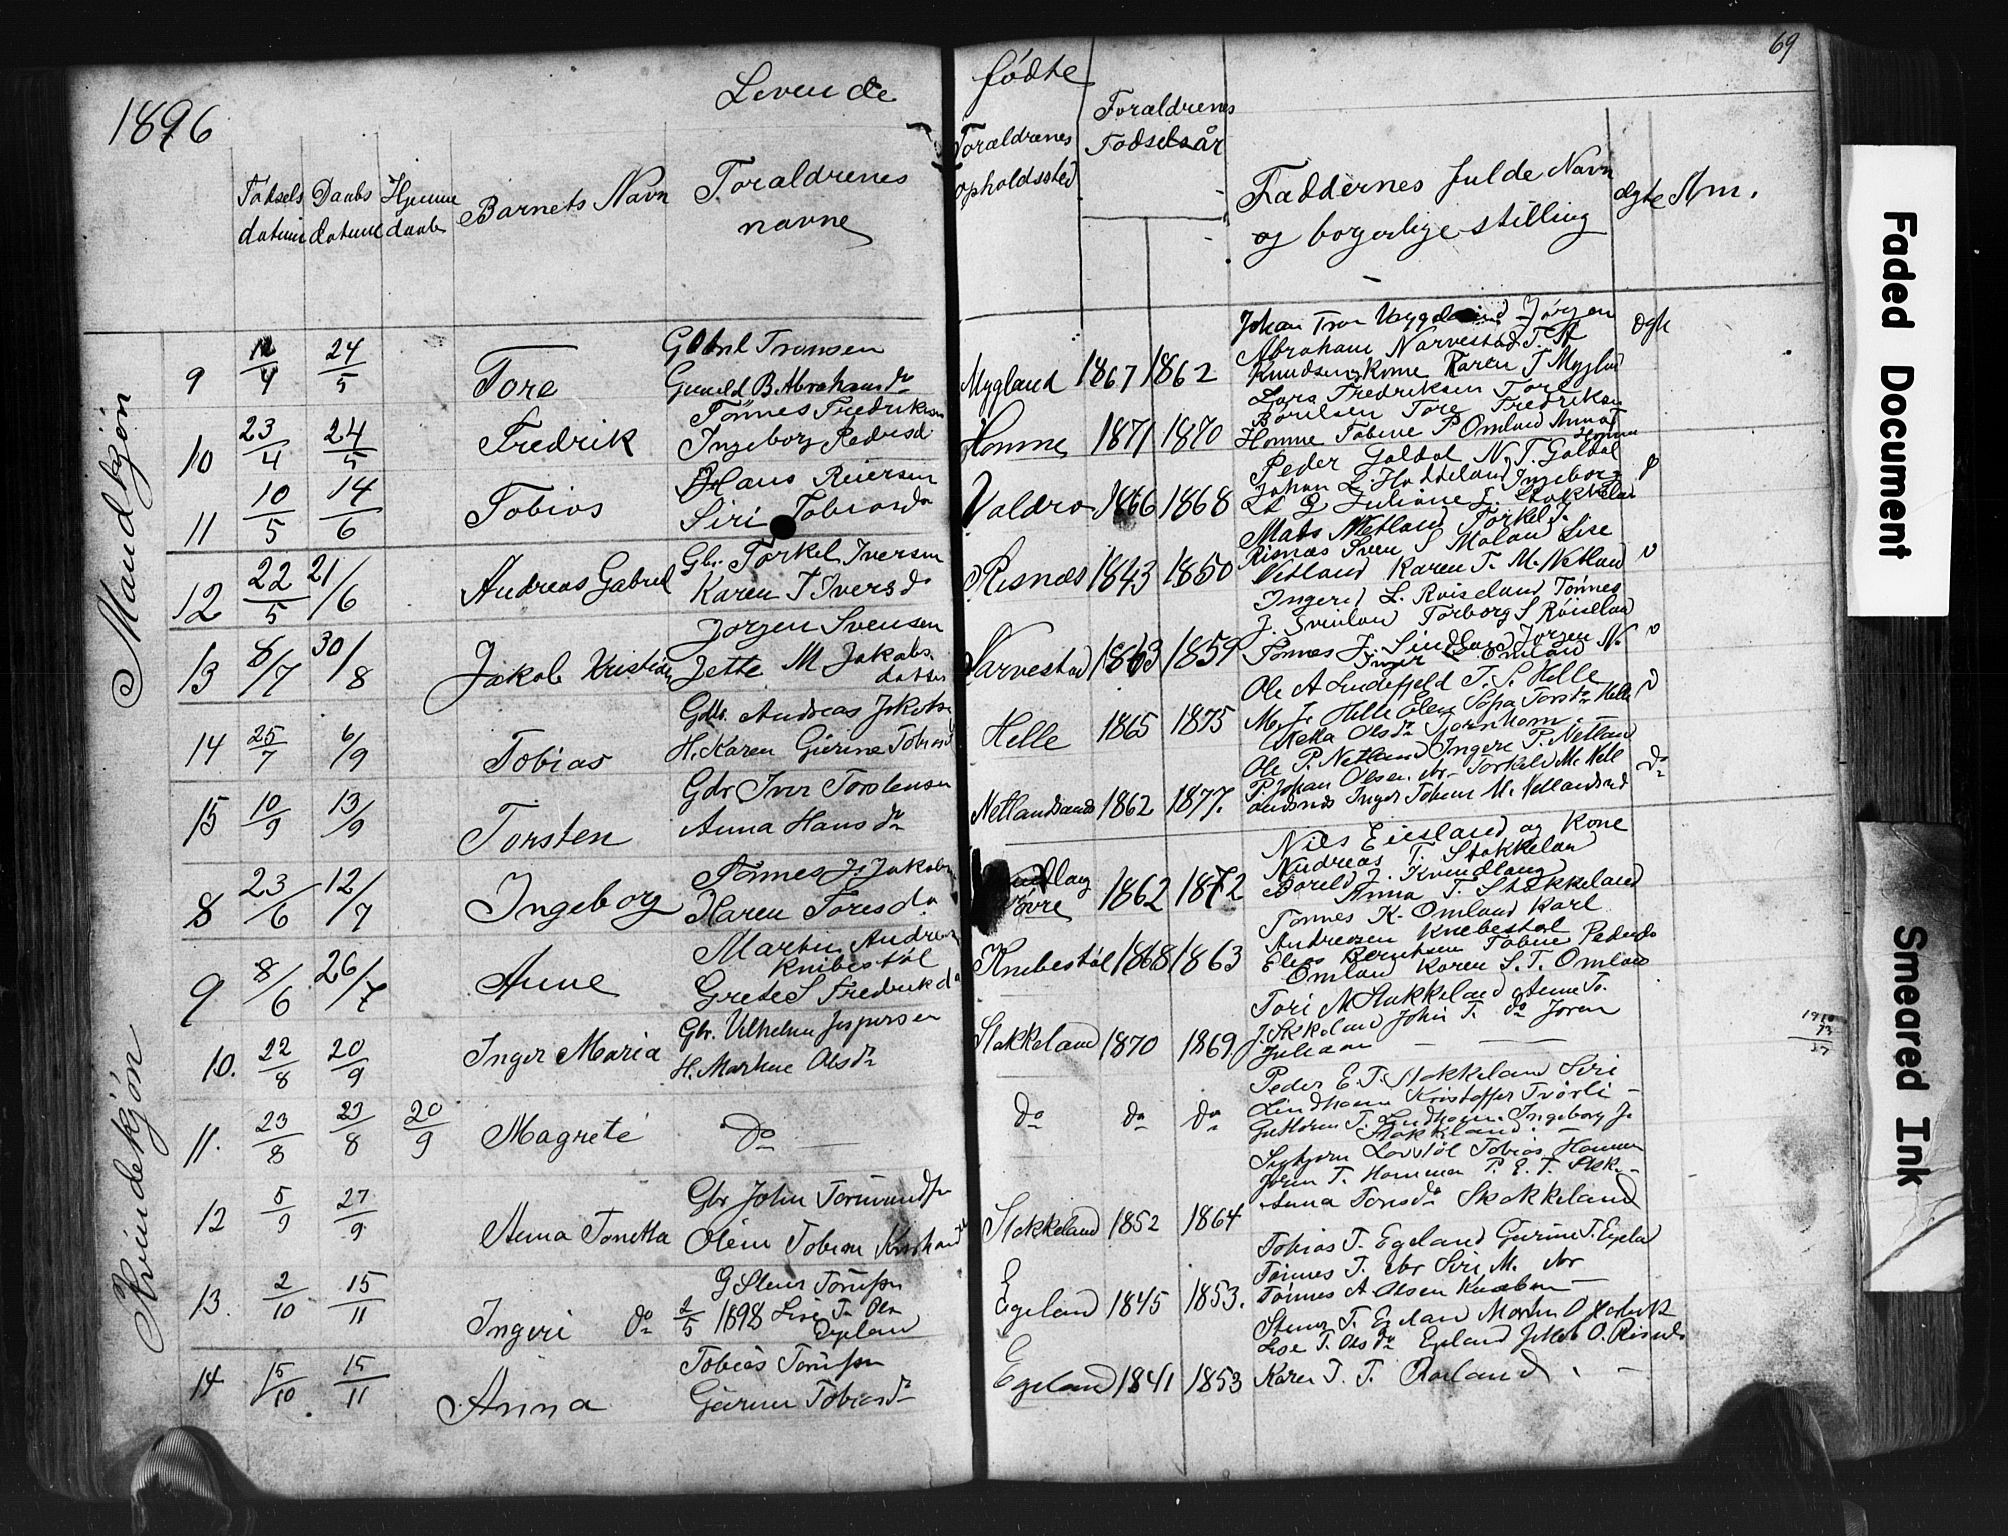 1896
Levende
Fødsels
datum
Daabs
datum
Hjemme
daab
Barnets Navn
Foraldrenes
navne
fødte
69
Foraldrenes
opholdssted
Foraldrenes
Fødselsår
Faddernes fulde Navn
og borgerlige stilling
ægte Am.
Mandkjøn
9 12/4 24/5 Tore
Gabriel Tronsen
Gunild B. Abrahamsdr
Mygland 1867 1862
Johan Tron Jørgen
Abraham Narvestad T. A
Knudsen Kone Karen T Mygland
ægte
10 23/4 24/5 Fredrik
Tønnes Fredriksen
Ingeborg Pedersd
Homme 1871 1870
Lars Fredriksen Tore
Tore Fredriksen
Homme Tobine P Omland Anna T
Homme
11 10/5 14/6 Tobias
Hans Reiersen
Siri Tobiasdr
Valdra 1866 1868
Peder Galdal N. T. Galdal
Johan L. Haddeland Ingeborg
Juliane J. Stakkeland
12 22/5 21/6 Andreas Gabriel
Gbr. Torkel Iversen
Karen T Iversd
Risnæs 1843 1850
Mads Netland Torkel T.
Risnæs Sven S Moland Lise
Netland Karen T. M. Netland
13 8/7 30/8 Jakob Kristian
Jørgen Svensen
Jette M Jakobs
datter
Narvestad 1863 1859
Ingerd L. Røiseland Tønnes
J. Svinland Torborg S Røiseland
Tønnes J. Jørgen N.
Inger Omland
14 25/7 6/9 Tobias
Gdbr. Andreas Jakobsen
H. Karen Gurine Tobiasd
Helle 1865 1875
Ole A Lindefjeld T. S. Helle
M. J. Helle Elen Sofia Torsdr Helle
Olsdr
15 10/9 13/9 Torsten
Gdbr Iver Torstensen
Anna Hansdr
Netlandsnæs 1862 1877.
Ole P. Netland Ingeri P. Netland
P. Johan Olsen. do- Torkild M. Netl
andsnæs Inger Tobine M. Netlandsnæs
do
Kvindekjøn
8 23/6 12/7 Ingeborg
Tønnes J. Jakobsen
Karen Toresdr
Øvre 1862 1872
Nils Eiesland og Kone
Andreas T. Stakkeland
Boreld J. Kvindlaug
Anna T. Stakkeland
9 8/6 26/7 Anne
Martin Andreas
Knibestøl
Grete S Fredrikd
Knibestøl 1868 1863
Tønnes K. Omland Karl
Andreasen Knebestøl
Elias Berntsen Tobine Pedersdr
Omland Karen S. T. Omland
10. 22/8 20/9 Inger Maria
Gbr. Vilhelm Jespersen
H. Martine Olsdr
Stakkeland 1870 1869.
Tori N Stakkeland Anne To.
J. Stkeland John T. do Joren
Juliane — —
11. 23/8 23/8 20/9 Magrete
do —
do do do
Peder E. T. Stakkeland Siri
Lindhom Kristoffer Tvørli —
Guttorm T. Lindhom. Ingeborg J.
Stakkeland —
12 5/9 27/9 Anna Tonetta
Gbr John Tormundsen
Olene Tobine
Stakkeland 1852 1864
Sigbjørn Lovstøl Tobias Hommen
John T. Hommen P. E. T. Stak-
Anna Tonsdr Stakkeland
13. 2/10 15/11 Ingeri do
G Stener Tørrisen
2/5 1898 Lise T. Olsn
Egeland
Egeland 1845 1853.
Tobias T. Egeland Gurine T. Egeland
Tønnes T. do Siri M. do
Tønnes A Olsen Knaben —
14 15/10 15/11 Anna
Tobias Tørrisen
Gurine Tobiasdr
Egeland 1841 1853
Stener T. Egeland Martin O
Lise T. Olsdr Egeland Jakob O. Risnæs
Karen T. T. Røiland
Faded Document
Smeared Ink